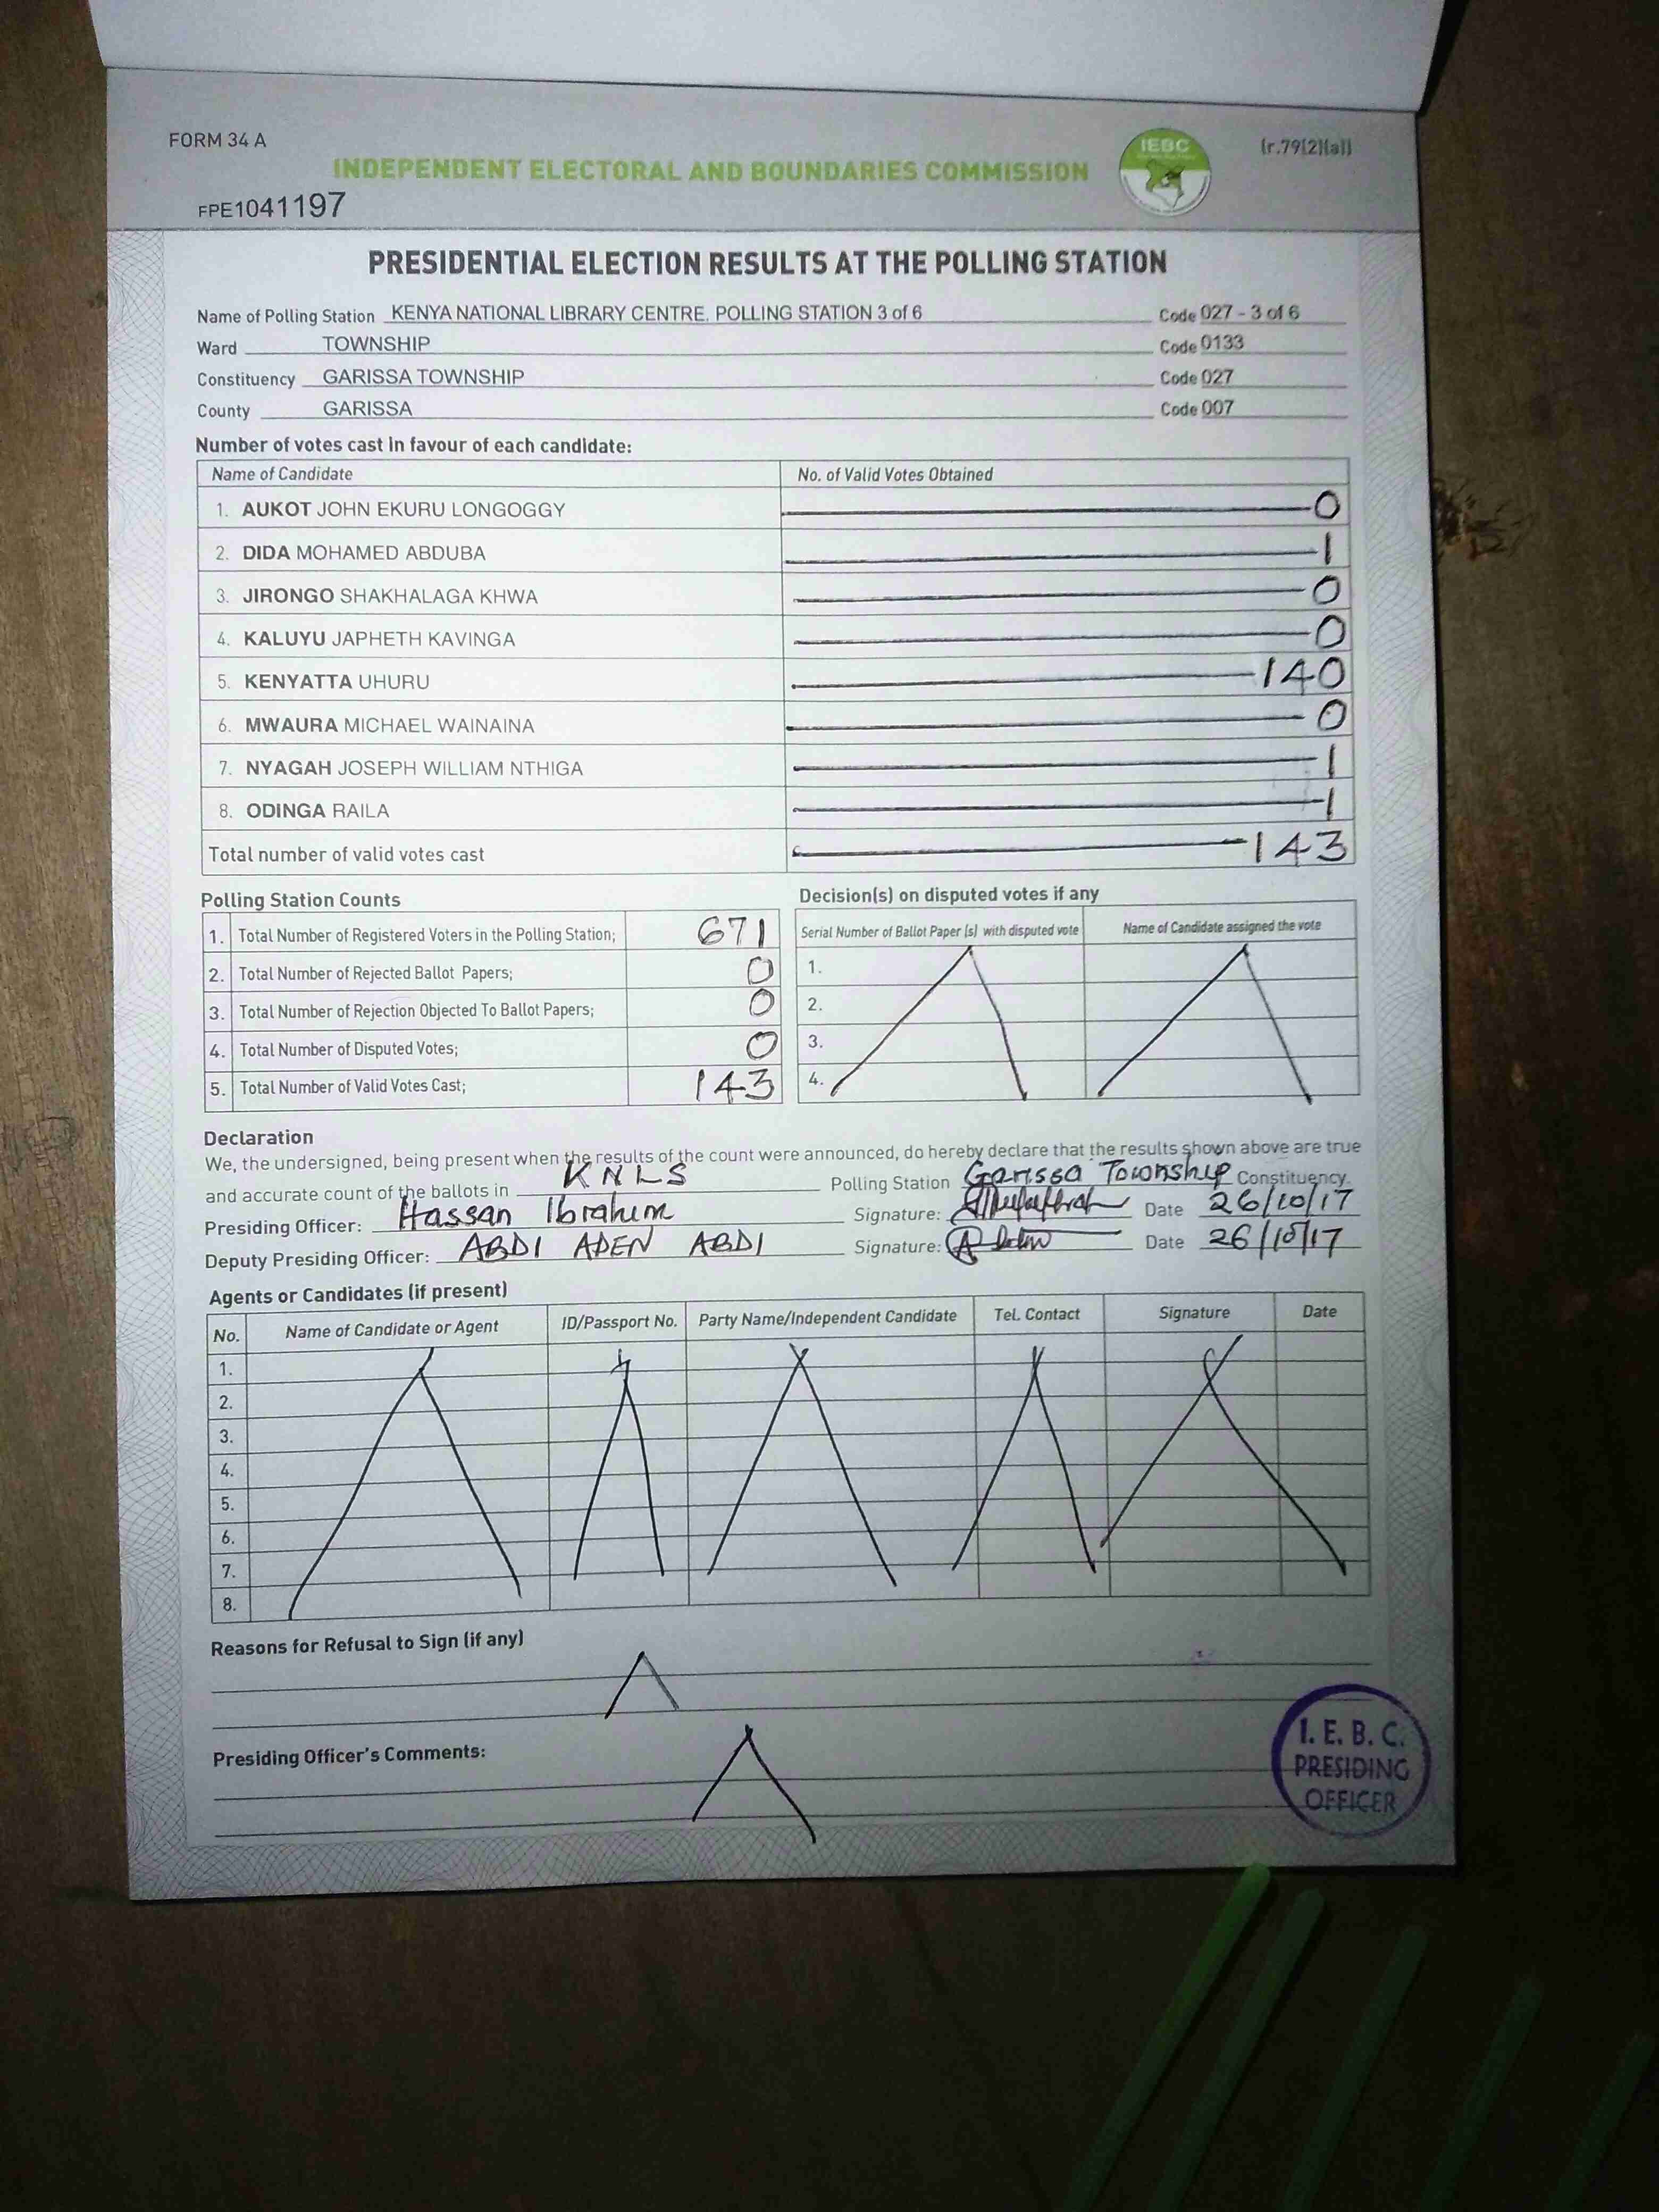 FORM 34 A
INDEPENDENT ELECTORAL AND BOUNDARIES COMMISSION
IEBC
(r.79(2)(a))
FPE1041197
PRESIDENTIAL ELECTION RESULTS AT THE POLLING STATION
Name of Polling Station KENYA NATIONAL LIBRARY CENTRE. POLLING STATION 3 of 6 Code 027 - 3 of 6
Ward TOWNSHIP Code 0133
Constituency GARISSA TOWNSHIP Code 027
County GARISSA Code 007
Number of votes cast in favour of each candidate:
Name of Candidate No. of Valid Votes Obtained
1. AUKOT JOHN EKURU LONGOGGY 0
2. DIDA MOHAMED ABDUBA 1
3. JIRONGO SHAKHALAGA KHWA 0
4. KALUYU JAPHETH KAVINGA 0
5. KENYATTA UHURU 140
6. MWAURA MICHAEL WAINAINA 0
7. NYAGAH JOSEPH WILLIAM NTHIGA 1
8. ODINGA RAILA 1
Total number of valid votes cast 143
Polling Station Counts
1. Total Number of Registered Voters in the Polling Station; 671
2. Total Number of Rejected Ballot Papers; 0
3. Total Number of Rejection Objected To Ballot Papers; 0
4. Total Number of Disputed Votes; 0
5. Total Number of Valid Votes Cast; 143
Decision(s) on disputed votes if any
Serial Number of Ballot Paper (s) with disputed vote Name of Candidate assigned the vote
1.
2.
3.
4.
Declaration
We, the undersigned, being present when the results of the count were announced, do hereby declare that the results shown above are true
and accurate count of the ballots in KNLS Polling Station Garissa Township Constituency.
Presiding Officer: Hassan Ibrahim Signature: Date 26/10/17
Deputy Presiding Officer: ABDI ADEN ABDI Signature: Date 26/10/17
Agents or Candidates (if present)
No. Name of Candidate or Agent ID/Passport No. Party Name/Independent Candidate Tel. Contact Signature Date
1.
2.
3.
4.
5.
6.
7.
8.
Reasons for Refusal to Sign (if any)
Presiding Officer's Comments:
I. E. B. C.
PRESIDING
OFFICER